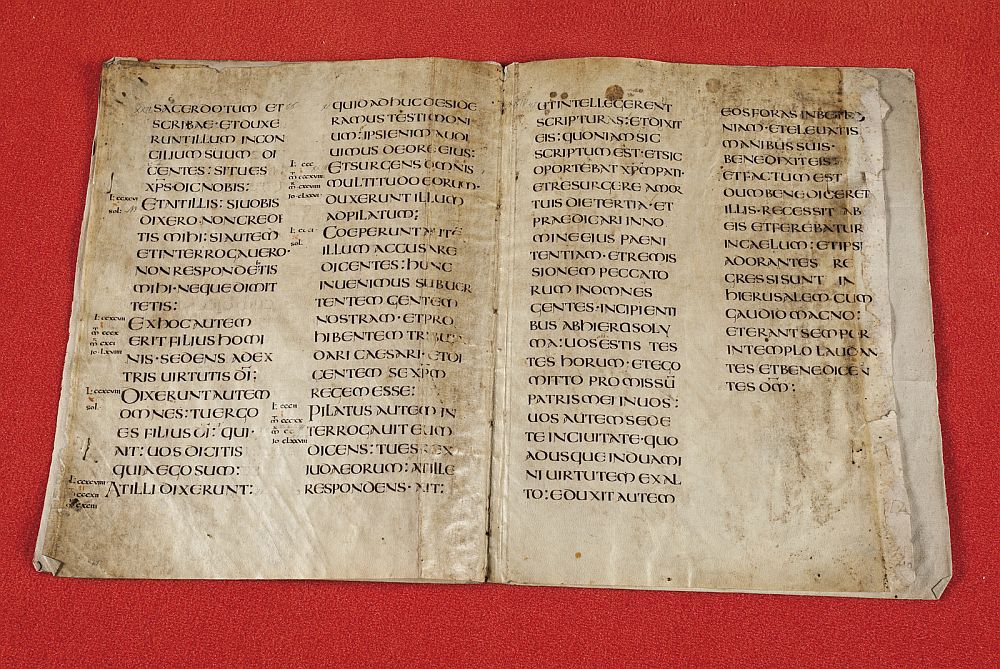 SACERDOTUM ET
SCRIBAE · ET DUXE
RUNT ILLUM IN CON
CILIUM SUUM DI
CENTES : SI TU ES
XPS DIC NOBIS :
ET AIT ILLIS : SI UOBIS
DIXERO NON CREDE
TIS MIHI : SI AUTEM
ET INTERROGAUERO ·
NON RESPONDETIS
MIHI · NEQUE DIMIT
TETIS :
EX HOC AUTEM
ERIT FILIUS HOMI
NIS · SEDENS A DEX
TRIS UIRTUTIS DI :
DIXERUNT AUTEM
OMNES : TU ERGO
ES FILIUS DI : QUI ·
AIT : UOS DICITIS
QUIA EGO SUM :
AT ILLI DIXERUNT :
QUID ADHUC DESIDE
RAMUS TESTIMONI
UM : IPSI ENIM AUDI
UIMUS DE ORE EIUS :
ET SURGENS OMNIS
MULTITUDO EORUM ·
DUXERUNT ILLUM
AD PILATUM ;
COEPERUNT
ILLUM ACCUSARE
DICENTES : HUNC
INUENIMUS SUBUER
TENTEM GENTEM
NOSTRAM · ET PRO
HIBENTEM
DARI CAESARI · ET DI
CENTEM SE XPM
REGEM ESSE :
PILATUS AUTEM IN
TERROGAUIT EUM
DICENS : TU ES REX
IUDAEORUM : AT ILLE
RESPONDENS · AIT :
UT INTELLEGERENT
SCRIPTURAS : ET DIXIT
EIS : QUONIAM SIC
SCRIPTUM EST · ET SIC
OPORTEBAT XPM PATI ·
ET RESURGERE A MOR
TUIS DIE TERTIA · ET
PRAEDICARI IN NO
MINE EIUS PAENI
TENTIAM · ET REMIS
SIONEM PECCATO
RUM IN OMNES
GENTES · INCIPIENTI
BUS AB HIEROSOLY
MA : UOS ESTIS TES
TES HORUM · ET EGO
MITTO PROMISSŪ
PATRIS MEI IN UOS :
UOS AUTEM SEDE
TE IN CIUITATE · QUO
ADUSQUE INDUAMI
NI UIRTUTEM EX AL
TO : EDUXIT AUTEM
EOS FORAS IN BETHA
NIAM · ET ELEUATIS
MANIBUS SUIS ·
BENEDIXIT EIS :
ET FACTUM EST
DUM BENEDICERET
ILLIS · RECESSIT AB
EIS ET FEREBATUR
IN CAELUM : ET IPSI
ADORANTES RE
GRESSI SUNT IN
HIERUSALEM CUM
GAUDIO MAGNO :
ET ERANT SEMPER
IN TEMPLO LAUDAN
TES ET BENEDICEN
TES DM :